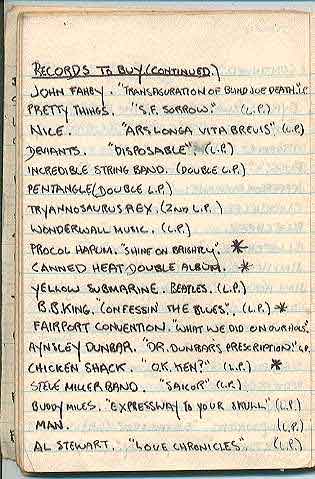 RECORDS TO BUY (CONTINUED.)
JOHN FAHEY. "TRANSFIGURATION OF BLIND JOE DEATH." L.P.
PRETTY THINGS. "S.F. SORROW." (L.P.)
NICE. "ARS LONGA VITA BREVIS" (L.P.)
DEVIANTS. "DISPOSABLE". (L.P.)
INCREDIBLE STRING BAND. (DOUBLE L.P.)
PENTANGLE (DOUBLE L.P.)
TRYANNOSAURUS REX. (2ND L.P.)
WONDERWALL MUSIC. (L.P.)
PROCOL HARUM. "SHINE ON BRIGHTLY." *
CANNED HEAT DOUBLE ALBUM. *
YELLOW SUBMARINE. BEATLES. (L.P.)
B.B. KING. "CONFESSIN THE BLUES". (L.P.) *
FAIRPORT CONVENTION. "WHAT WE DID ON OUR HOLS".
AYNSLEY DUNBAR. "DR. DUNBAR'S PRESCRIPTION." L.P.
CHICKEN SHACK. "O.K. KEN?" (L.P.) *
STEVE MILLER BAND. "SAILOR" (L.P.)
BUDDY MILES. "EXPRESSWAY TO YOUR SKULL" (L.P.)
MAN. (L.P.)
AL STEWART. "LOVE CHRONICLES". (L.P.)